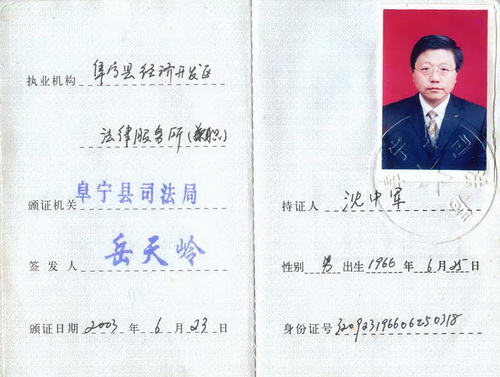 执业机构 阜宁县经济开发区
法律服务所(兼职)
颁证机关 阜宁县司法局
签发人 岳天岭
颁证日期 2003 年 6 月 23 日
持证人 沈中军
性别 男 出生 1966 年 6 月 25 日
身份证号 320923196606250318